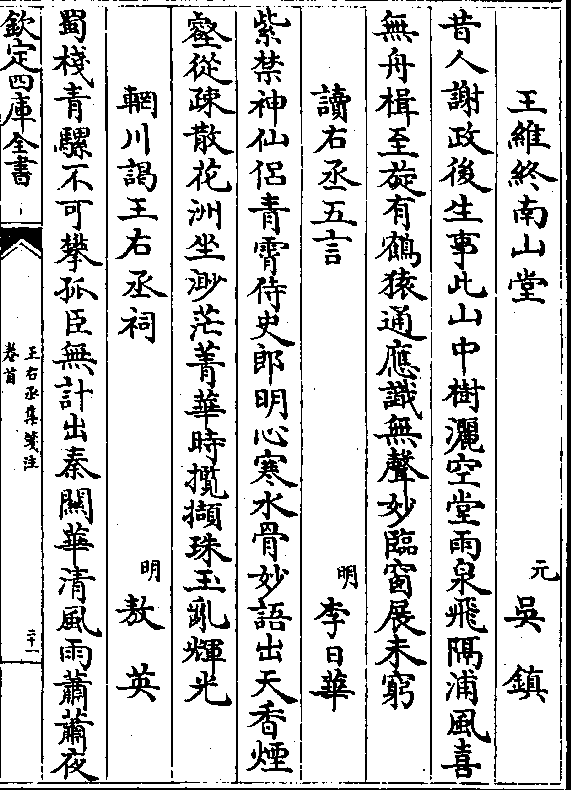 王維終南山堂　元　吳鎮
昔人謝政後生事此山中樹灑空堂雨泉飛隔浦風喜
無舟楫至旋有鶴猿通應識無聲妙臨窗展未窮
讀右丞五言　明　李日華
紫禁神仙侶青霄侍史郎明心寒水骨妙語出天香煙
壑從疎散花洲坐渺茫菁華時攬擷珠玉亂輝光
輞川謁王右丞祠　明　敖英
蜀棧青騾不可攀孤臣無計出秦關華清風雨蕭蕭夜
欽定四庫全書
王右丞集箋注
卷首
二十一